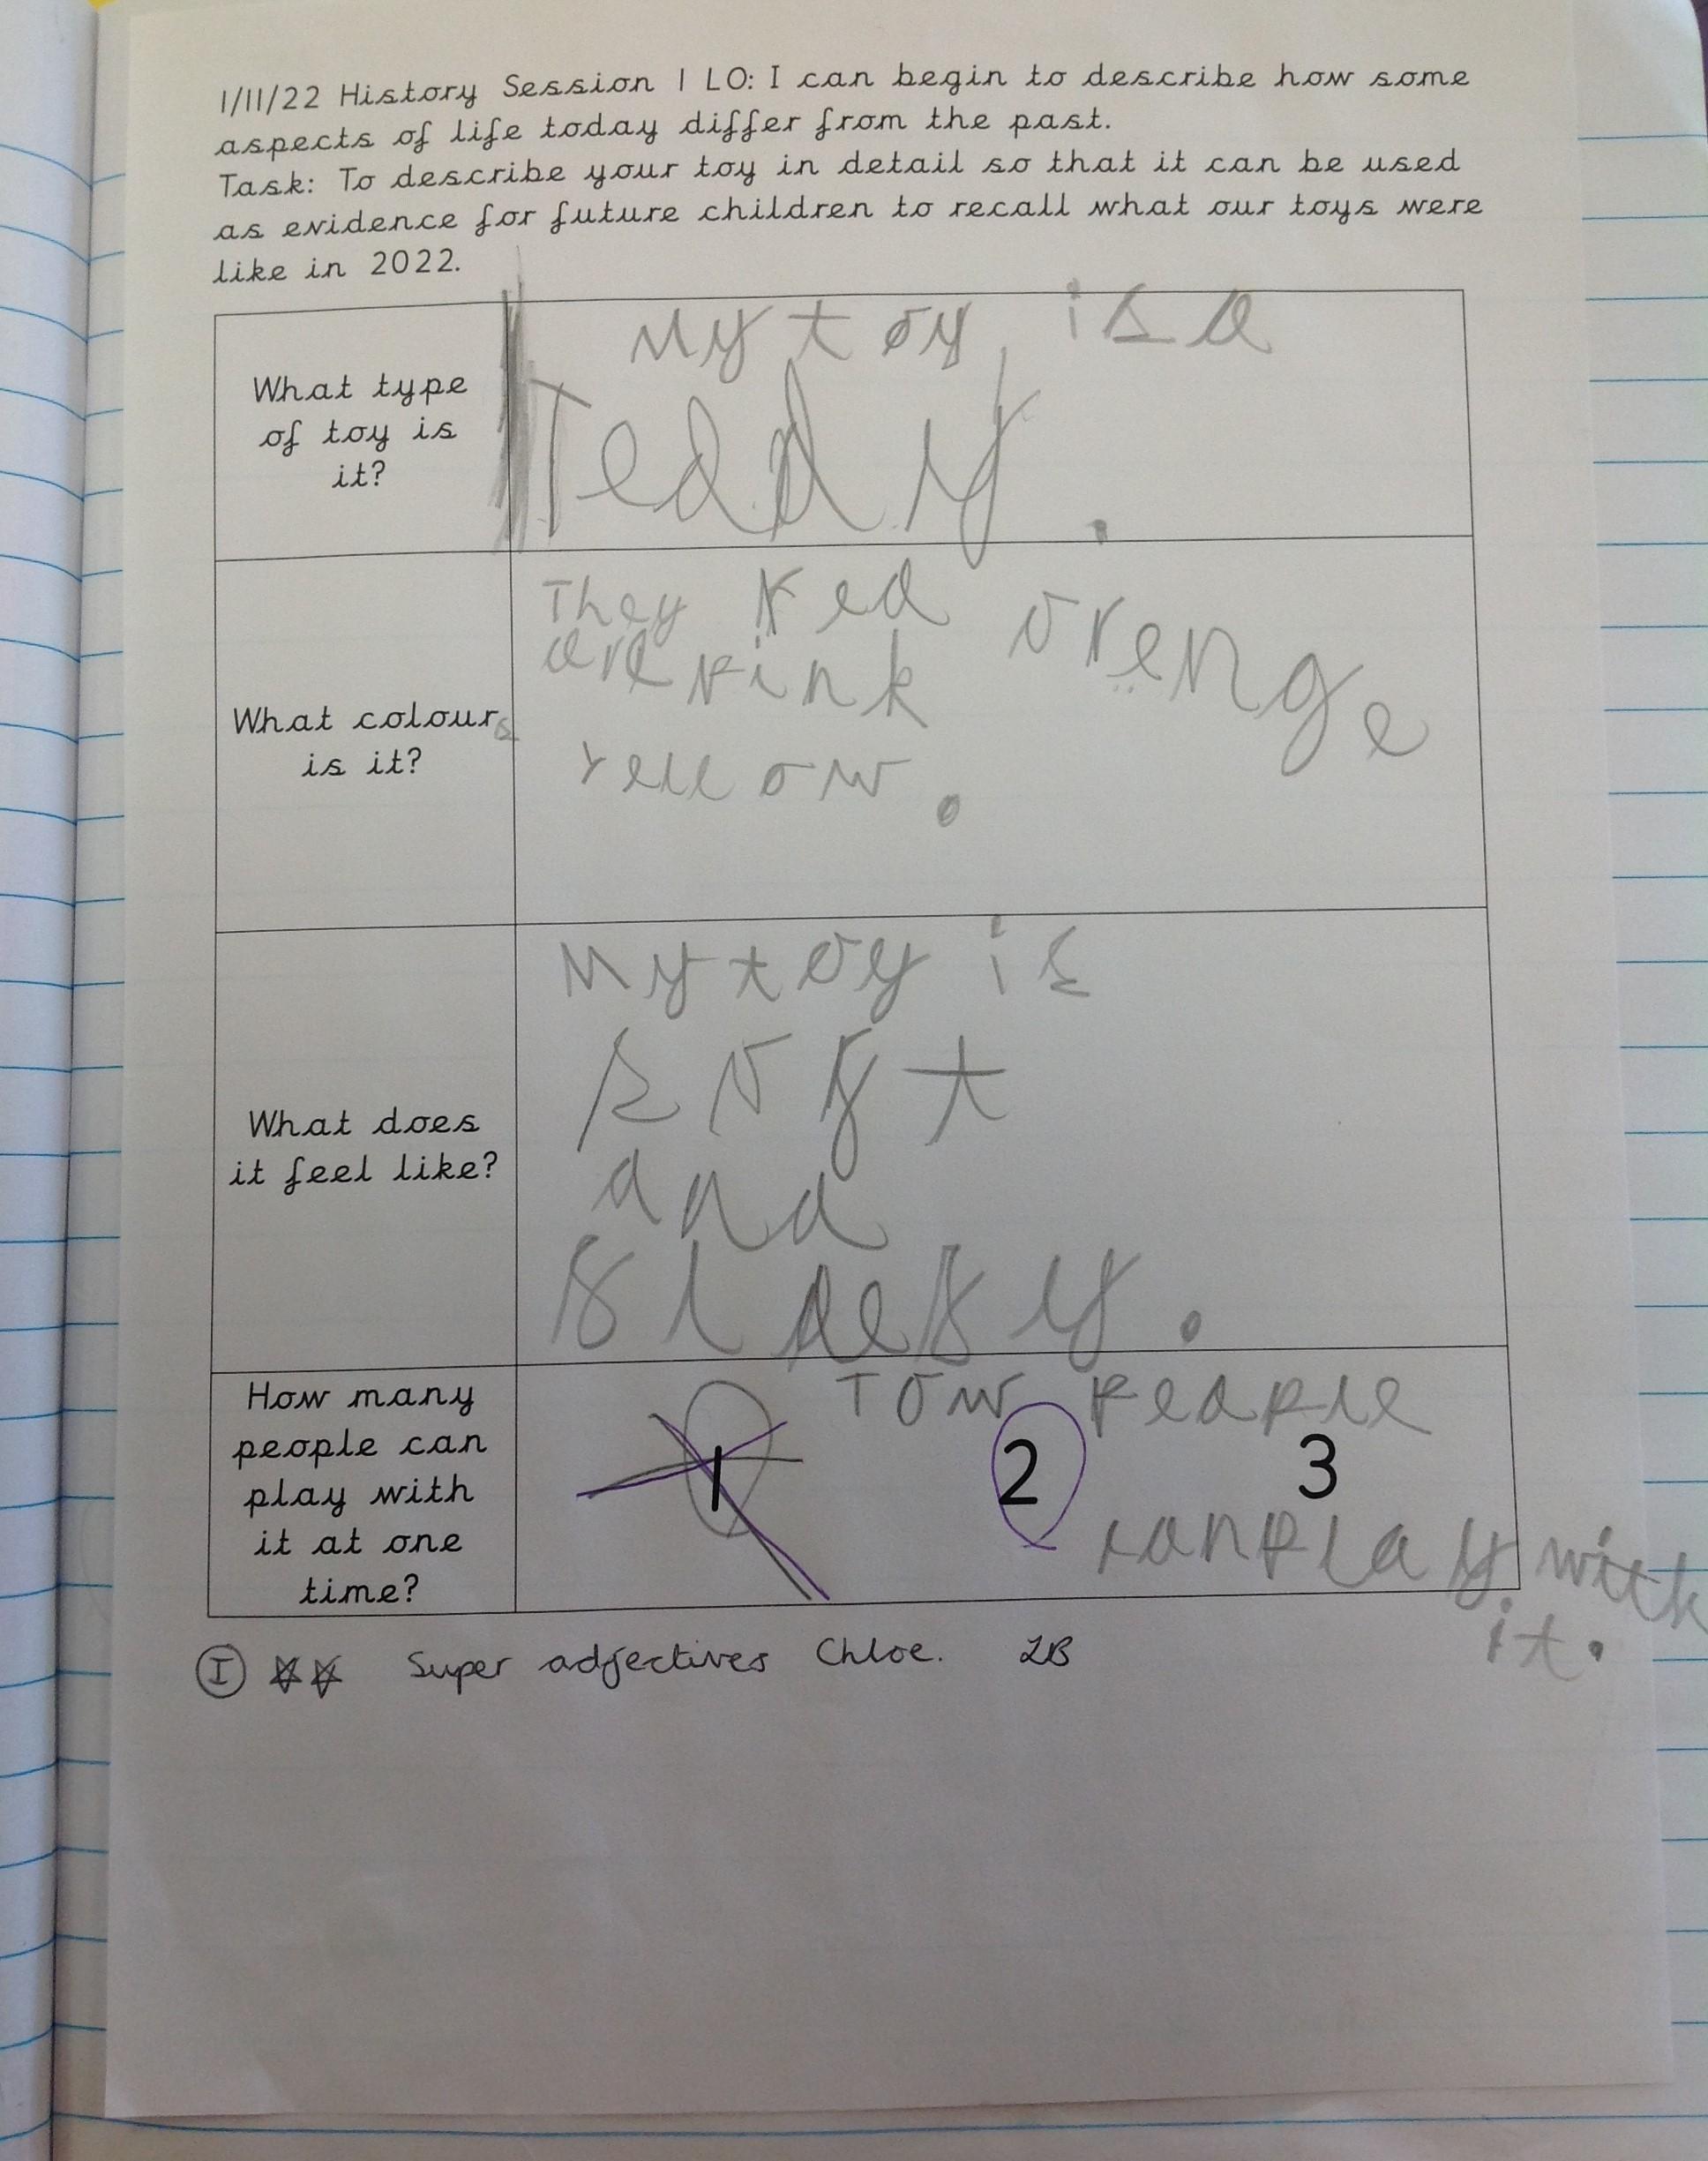 1/11/22 History Session 1 LO: I can begin to describe how some
aspects of life today differ from the past.
Task: To describe your toy in detail so that it can be used
as evidence for future children to recall what our toys were
like in 2022.
What type
of toy is
it?
My toy is a
Teddy.
What colours
is it?
They red orenge
are pink
yellow.
What does
it feel like?
My toy is
soft
and
How many
people can
play with
it at one
time?
Tow people
1 2 3
can play with
it.
I Super adjectives Chloe. LB